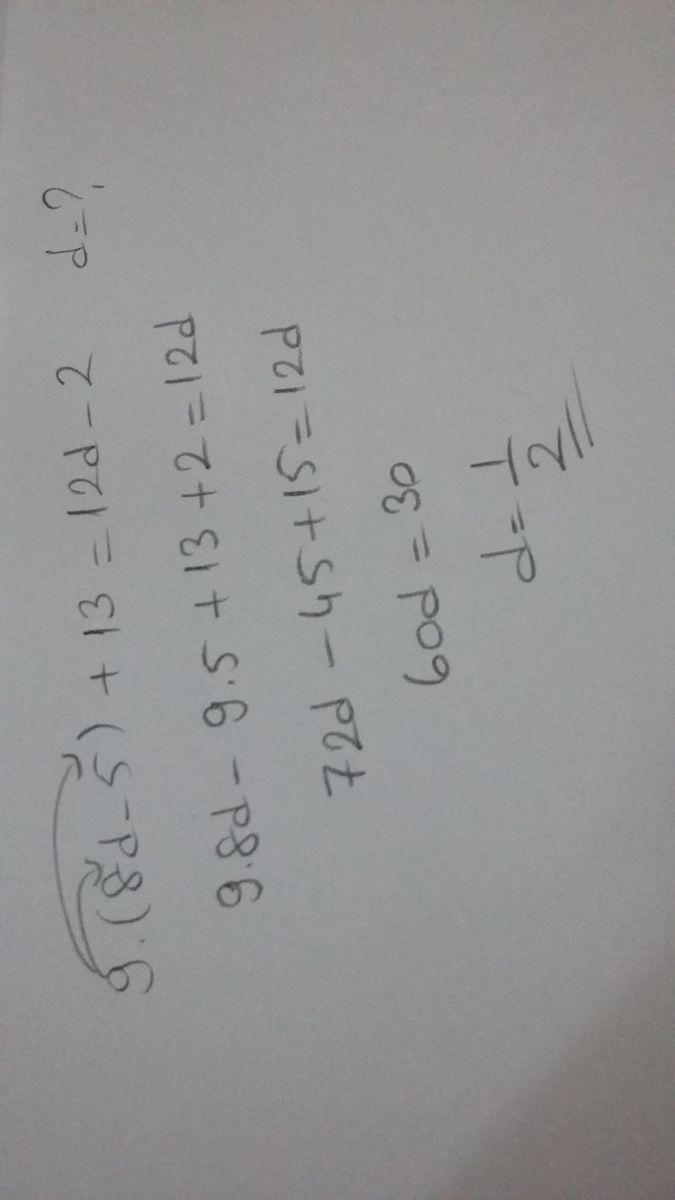 9.(8d-5)+13=12d-2 d=?
9.8d-9.5+13+2=12d
72d-45+15=12d
60d=30
d=1/2